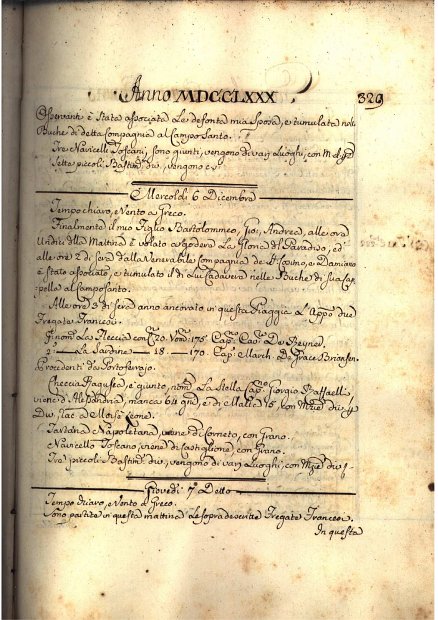 Anno MDCCLXXX 329
è Stata associata La defonta mia Sposa, e tumulata nelle
Buche di detta Compagnia al Campo Santo.
Tre Navicelli Toscani, sono giunti, vengono di varj Luoghi, con
Sette piccoli Bastim. div. vengono
Mercoldi 6 Dicembre
Tempo chiaro, e Vento a Greco.
Finalmente il mio Figlio Bartolommeo, Andrea, alle ore
Undici della Mattina è volato a godere La Gloria del Paradiso, ed
alle ore 2 di sera dalla Venerabile Compagnia de SS. Cosimo, e Damiano
è Stato associato, e tumulato il di Lui Cadavere nelle Buche di sua Cap-
pella al Camposanto.
Alle ore 3 di sera anno ancorato in questa Spiaggia L'App. due
Fregate Francesi.
La con C. 20. Uom. 175. Cap. Cav. De
2. La Sardine — 18. — 170. Cap. March. De Grace
Procedenti da Portoferrajo.
Checcia Ragusea, è giunto, nom. La Stella Cap. Giorgio Raffaelli
viene di Alesandria, manca 64 gni, e di Malta 15, con Mzie div.
Dw. a Moisè Leone.
Tartana Napoletana, viene di Corneto, con Grano.
Navicello Toscano, viene di Castiglione, con Grano.
Tre piccoli Bastim. div. vengono di varj Luoghi, con Mzie div.
Giovedi 7 Detto
Tempo chiaro, e Vento a Greco.
Sono partite in questa mattina Le sopradescritte Fregate Francesi.
In questa